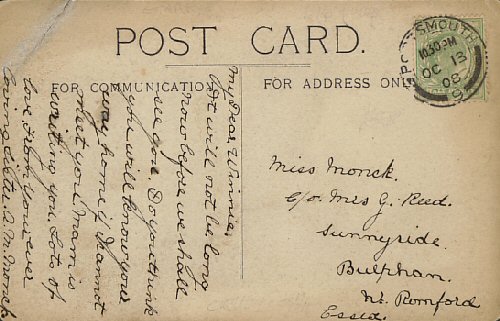 POST CARD.
FOR COMMUNICATION
FOR ADDRESS ONLY
PORTSMOUTH
10.30 PM
OC 13
08
My Dear Winnie.
It will not be long
now before we shall
see you. Do you think
you will know your
way home if I cannot
meet you. Mam is
writing you. Lots of
love from your ever
loving sister A. M. Monck
Miss Monck.
c/o Mrs G. Reed.
Sunnyside.
Bulphan.
Nr. Romford
Essex.